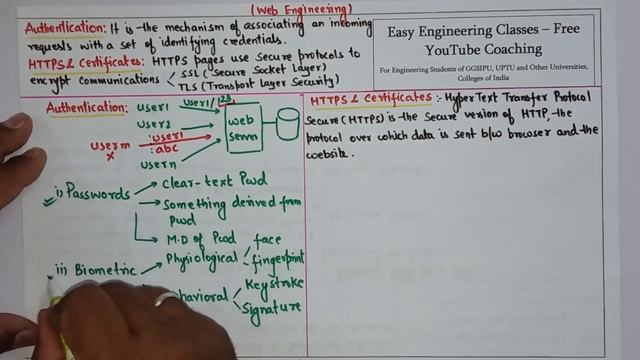 (Web Engineering)
Authentication: It is the mechanism of associating an incoming
requests with a set of identifying credentials.
HTTPS & Certificates: HTTPS pages use secure protocols to
encrypt communications
SSL (Secure Socket Layer)
TLS (Transport Layer Security)
Easy Engineering Classes – Free
YouTube Coaching
For Engineering Students of GGSIPU, UPTU and Other Universities,
Colleges of India
Authentication:
user1
user1/123
user2
user1
:abc
userm
x
usern
web
server
i) Passwords
clear-text Pwd
something derived from
Pwd
M.D of Pwd
ii) Biometric
Physiological
face
fingerprint
Keystroke
Signature
HTTPS & Certificates :- HyperText Transfer Protocol
Secure (HTTPS) is the secure version of HTTP, the
protocol over which data is sent b/w browser and the
website.